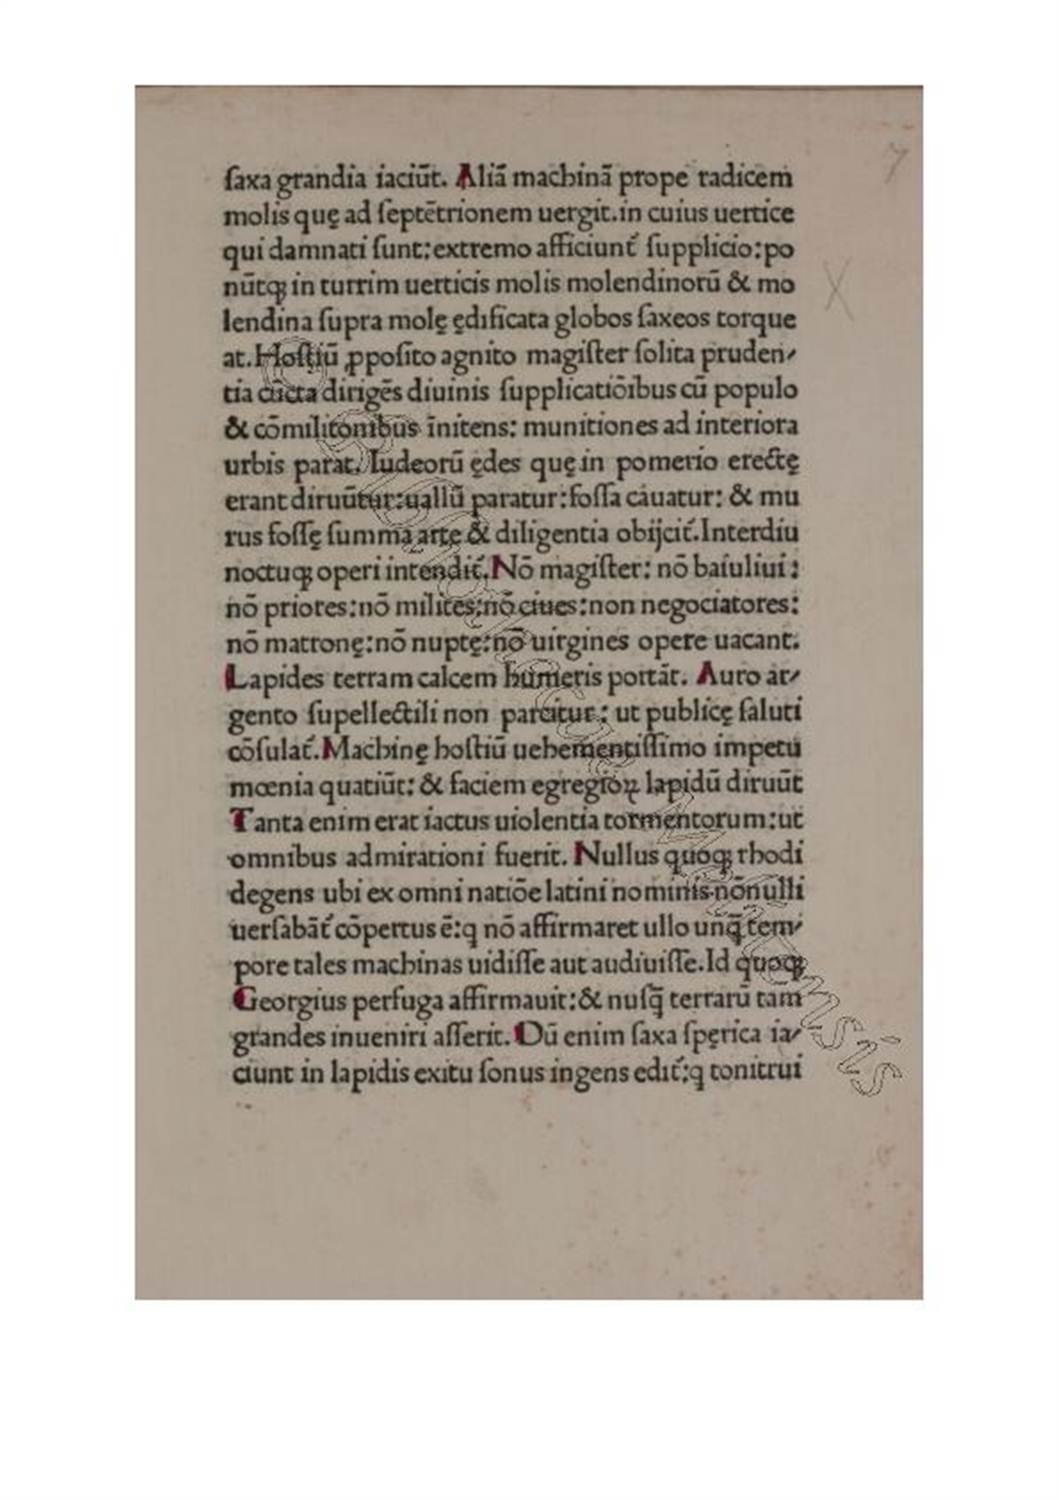 7
ſaxa grandia iaciūt. Aliā machinā prope radicem
molis quę ad ſeptētrionem uergit.in cuius uertice
qui damnati ſunt:extremo afficiunt᷑ ſupplicio:po
nūtqꝫ in turrim uerticis molis molendinorū & mo
lendina ſupra molę ędificata globos ſaxeos torque
at. Hoſtiū ꝓpoſito agnito magiſter ſolita pruden⸗
tia cūcta dirigēs diuinis ſupplicatiōibus cū populo
& cōmilitonibus īnitens: munitiones ad interiora
urbis parat. Iudeorū ędes quę in pomerio erectę
erant diruūtur:uallū paratur:foſſa cauatur: & mu
rus foſſę ſumma arte & diligentia obijcit᷑.Interdiu
noctuqꝫ operi intendit᷑.Nō magiſter: nō baiuliui:
nō priores:nō milites:nō ciues:non negociatores:
nō matronę:nō nuptę:nō uirgines opere uacant.
Lapides terram calcem humeris portāt. Auro ar⸗
gento ſupellectili non parcitur: ut publicę ſaluti
cōſulat᷑.Machinę hoſtiū uehementiſſimo impetu
mœnia quatiūt: & faciem egregioꝝ lapidū diruūt
Tanta enim erat iactus uiolentia tormentorum:ut
omnibus admirationi fuerit. Nullus quoqꝫ rhodi
degens ubi ex omni natiōe latini nominis nōnulli
uerſabāt᷑ cōpertus ē:q nō affirmaret ullo unq̄ tem⸗
pore tales machinas uidiſſe aut audiuiſſe.Id quoqꝫ
Georgius perfuga affirmauit:& nuſq̄ terrarū tam
grandes inueniri aſſerit. Dū enim ſaxa ſpęrica ia⸗
ciunt in lapidis exitu ſonus ingens edit᷑:q tonitrui